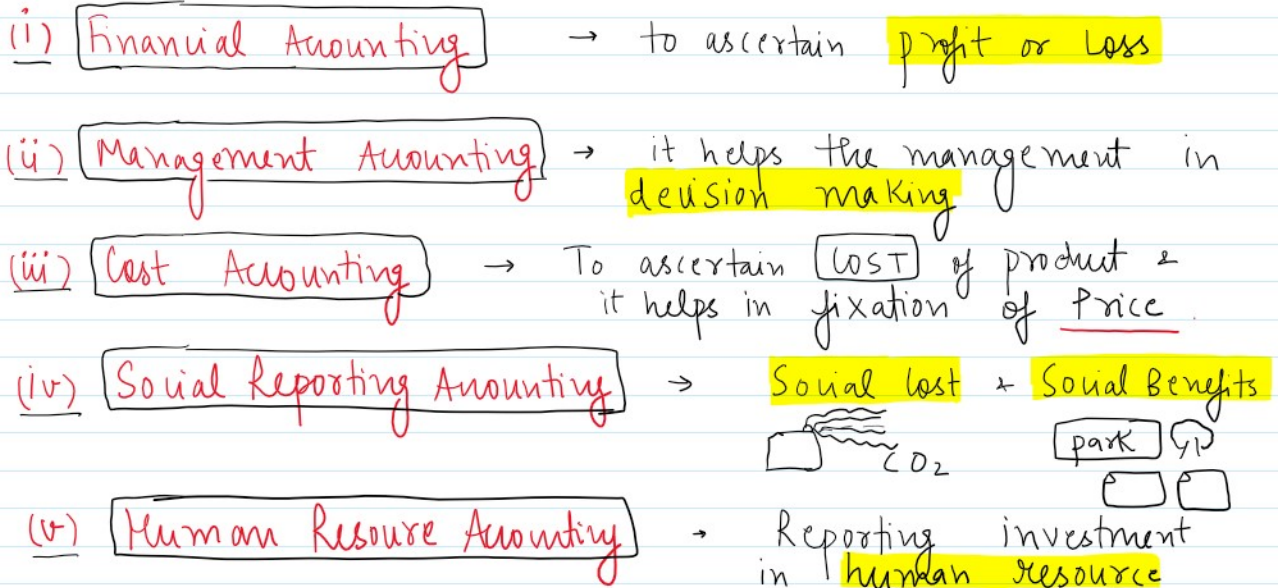 (i) Financial Accounting → to ascertain profit or Loss
(ii) Management Accounting → it helps the management in
decision making
(iii) Cost Accounting → To ascertain COST of product &
it helps in fixation of Price.
(iv) Social Reporting Accounting → Social Cost & Social Benefits
CO2 park
(v) Human Resoure Accounting → Reporting investment
in human resource